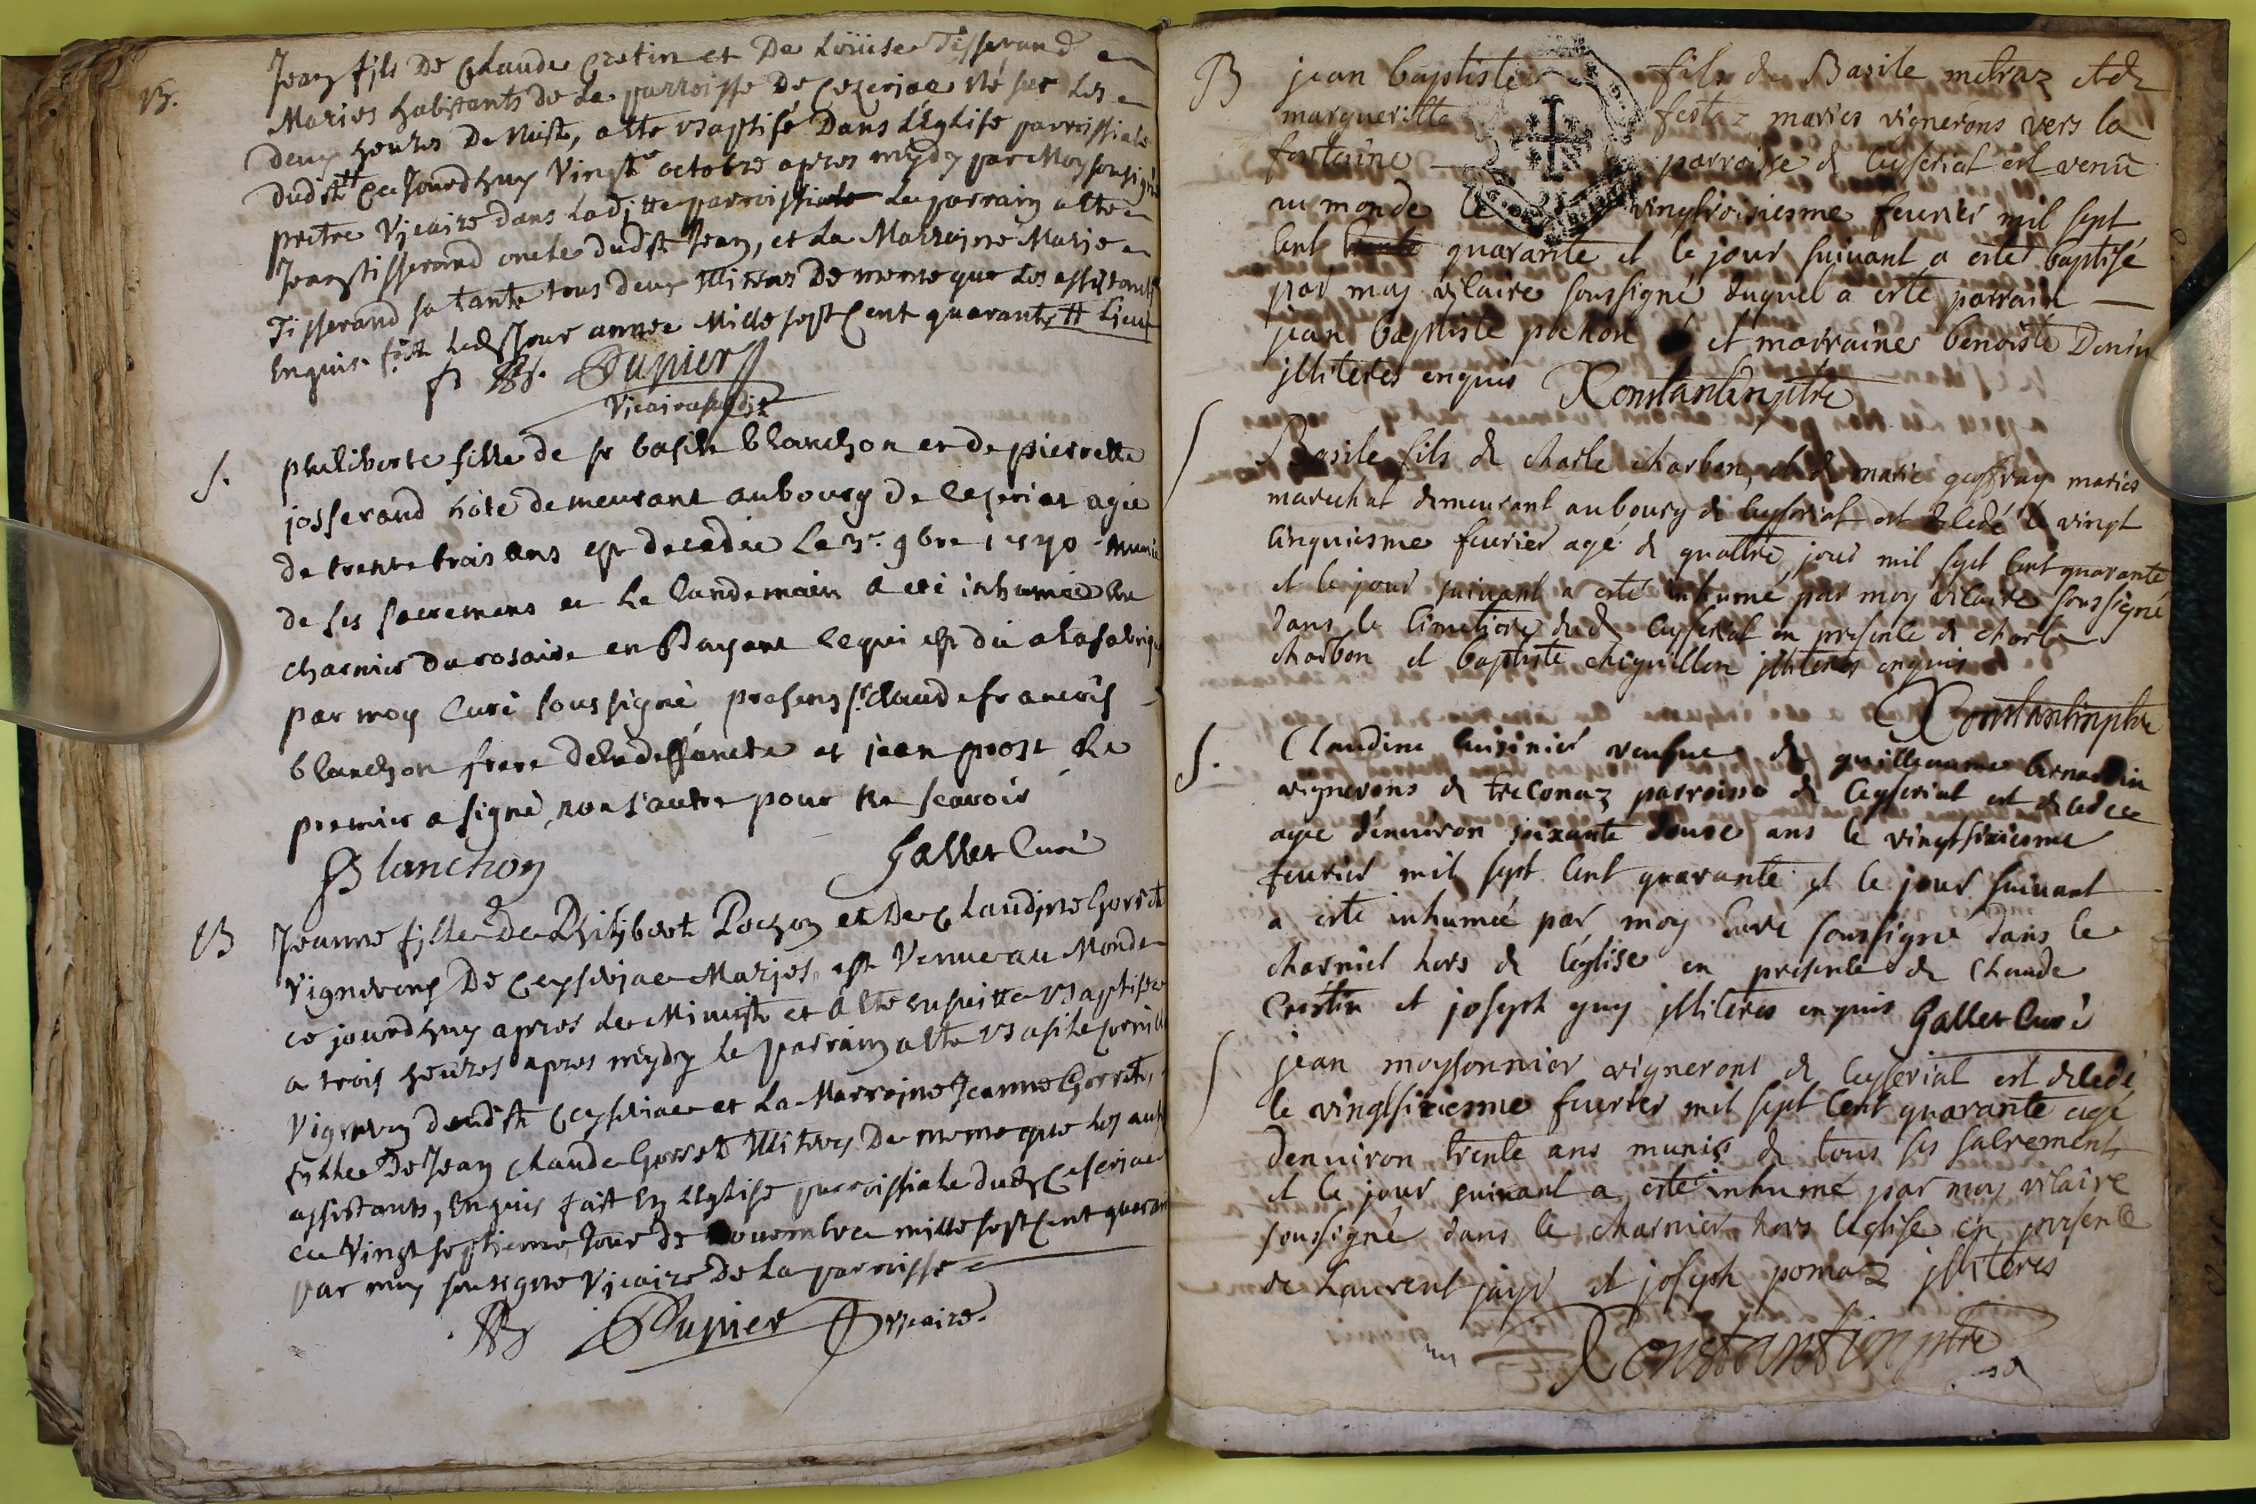 B.
Jean fils De Claude Cretin et De Loüise Tisserand
Mariés habitants de La parroisse De Cezeriac Né sur Les
Deux heures De Nuit, a Ete Baptisé Dans L'Eglise parroissiale
dudit Ce Jourdhuy Vingt octobre apres mydy par Moy sousigné
prêtre Vicaire dans Laditte parroissiale Le parrain a Ete
Jean Tisserand oncle dudit Jean, et La Marraine Marie
Tisserand sa tante tous deux Illiteres De meme que Les assistants
Enquis. fait Led. Jour année Mille sept Cent quarante
Dupier
Vicaire susdit
S.
philiberte fille de sr basile blanchon et de pierrette
josserand hôte demeurant au bourg de Cezeriat agée
de trente trois ans est decedée Le 9bre 1740 munie
de ses sacremens et Le landemain a eté inhumée
charnier du rosaire en Payant ce qui est dû a la fabrique
par moy Curé soussigné presens sr Claude francois
blanchon frere de la deffuncte et jean prost Le
premier a signé, non l'autre pour ne scavoir
Blanchon Gallet Curé
B
Jeanne fille de Philibert Pochon et De Claudine Gorret
Vignerons De Ceyseriac Mariés, est Venue au Monde
ce jourdhuy apres Le Minuit et a Ete ensuitte Baptisée
a trois heures apres mydy le parrain a Ete Basile
Vigneron dudit Ceyseriac et La Marraine Jeanne Gorret,
fille De Jean Claude Gorret Illiteres De meme que Les autres
assistants, Enquis fait En L'Eglise parroissiale dud. Ceseriac
Ce Vingt septieme Jour De Novembre mille sept Cent quarante
par moy sousigné Vicaire De La parroisse
Dupier Vicaire.
B
jean baptiste fils de Basile metraz et de
margueritte festaz mariés vignerons vers la
fontaine parroisse de Ceyseriat est venu
au monde le vingtroisiesme feuvrier mil sept
Cent quarante et le jour suivant a esté baptisé
par moy vicaire soussigné duquel a esté parrain
jean baptiste pochon et marraine benoiste
illiteres enquis Constantin ptre
S
Basile fils de charle charbon, et de marie geoffray mariés
marechal demeurant au bourg de Ceyseriat est decedé le vingt
Cinquiesme feuvrier agé de quattre jour mil sept Cent quarante
et le jour suivant a esté inhumé par moy vicaire soussigné
dans le Cimetiere dud Ceyseriat en presence de charle
charbon et baptiste chiquillon illiteres enquis
Constantin ptre
S.
Claudine Cuisinier veufue de guillaume bernardin
vignerons de treConaz parroisse de Ceyseriat est decedee
agee denuiron soixante douse ans le vingtsixiesme
feuvrier mil sept Cent quarante et le jour suivant
a esté inhumée par moy Curé soussigné dans le
charnier hors de l'église en presence de Claude
Crestin et joseph guy illiteres enquis Gallet Curé
S
jean moyssonnier vignerons de Ceyseriat est decedé
le vingtsixiesme feuvrier mil sept Cent quarante agé
denuiron trente ans munis de tous ses sacrements
et le jour suivant a esté inhumé par moy vicaire
soussigné dans le charnier hors leglise en presence
de Laurent et joseph pomaz illiteres
Constantin ptre